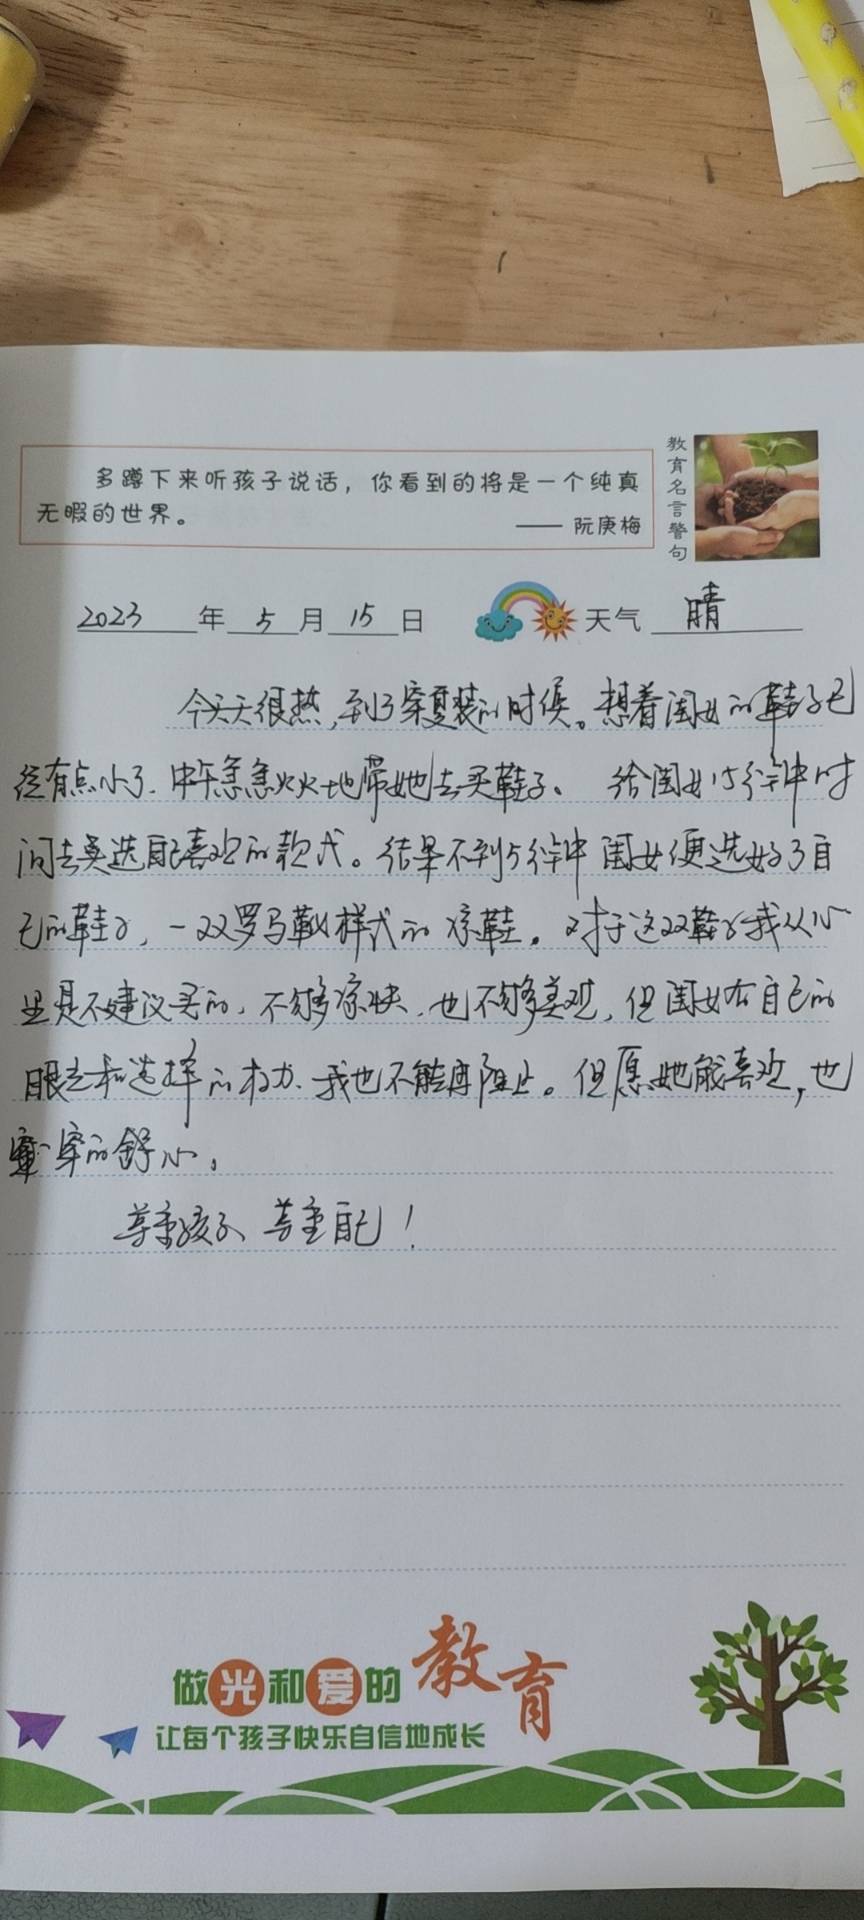 多蹲下来听孩子说话，你看到的将是一个纯真
无暇的世界。
—— 阮庚梅
教育名言警句
2023年5月15日 天气 晴
今天天很热，到了穿夏装的时候。想着闺女的鞋子已
经有点小了.中午急急火火地带她去买鞋子、给闺女15分钟时
间去奠选自己喜欢的款式。结果不到5分钟闺女便选好了自
己的鞋子，一双罗马靴样式的凉鞋。对于这双鞋子我从心
里是不建议买的，不够凉快.也不够美观，但闺女有自己的
眼光和选择的权力、我也不能再阻止。但愿她能喜欢，也
穿的舒心。
尊重孩子 尊重自己！
做光和爱的教育
让每个孩子快乐自信地成长